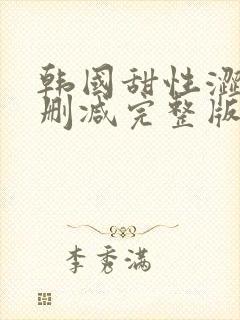 韩国甜性涩
删减完整版
李秀满